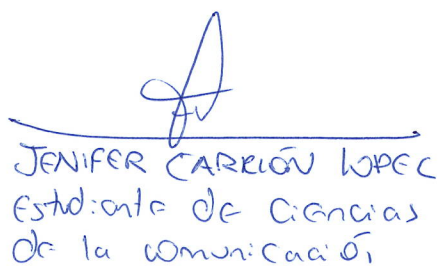 JENIFER CARRIÓN LOPEZ
Estudiante de Ciencias
de la comunicación